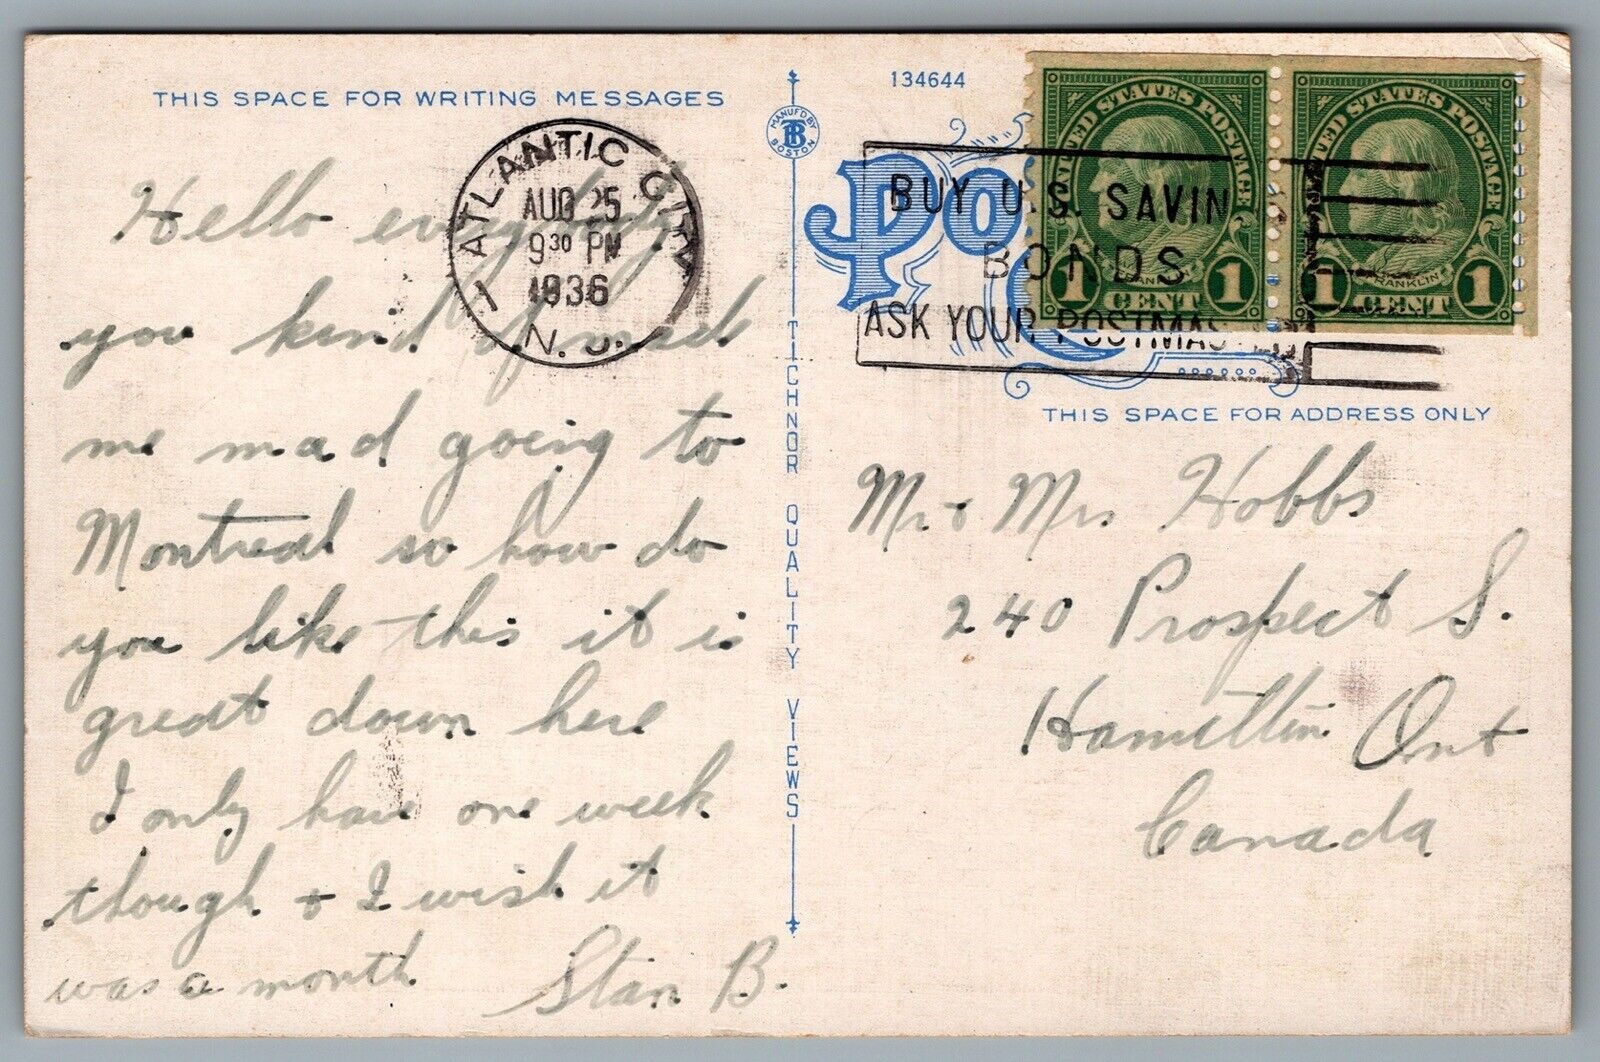 THIS SPACE FOR WRITING MESSAGES
134644
MANUF'D BY
TB
BOSTON
ATLANTIC CITY
1
AUG 25
9 30 PM
1936
N. J.
UNITED STATES POSTAGE
FRANKLIN
1 CENT 1
UNITED STATES POSTAGE
FRANKLIN
1 CENT 1
BUY U.S. SAVIN
BONDS
ASK YOUR POSTMAS
Po
THIS SPACE FOR ADDRESS ONLY
TICHNOR QUALITY VIEWS
Hello everybody
you kind of made
me mad going to
Montreal so how do
you like this it is
great down here
I only have one week
though + I wish it
was a month Stan B.
Mr + Mrs Hobbs
240 Prospect S.
Hamilton Ont
Canada